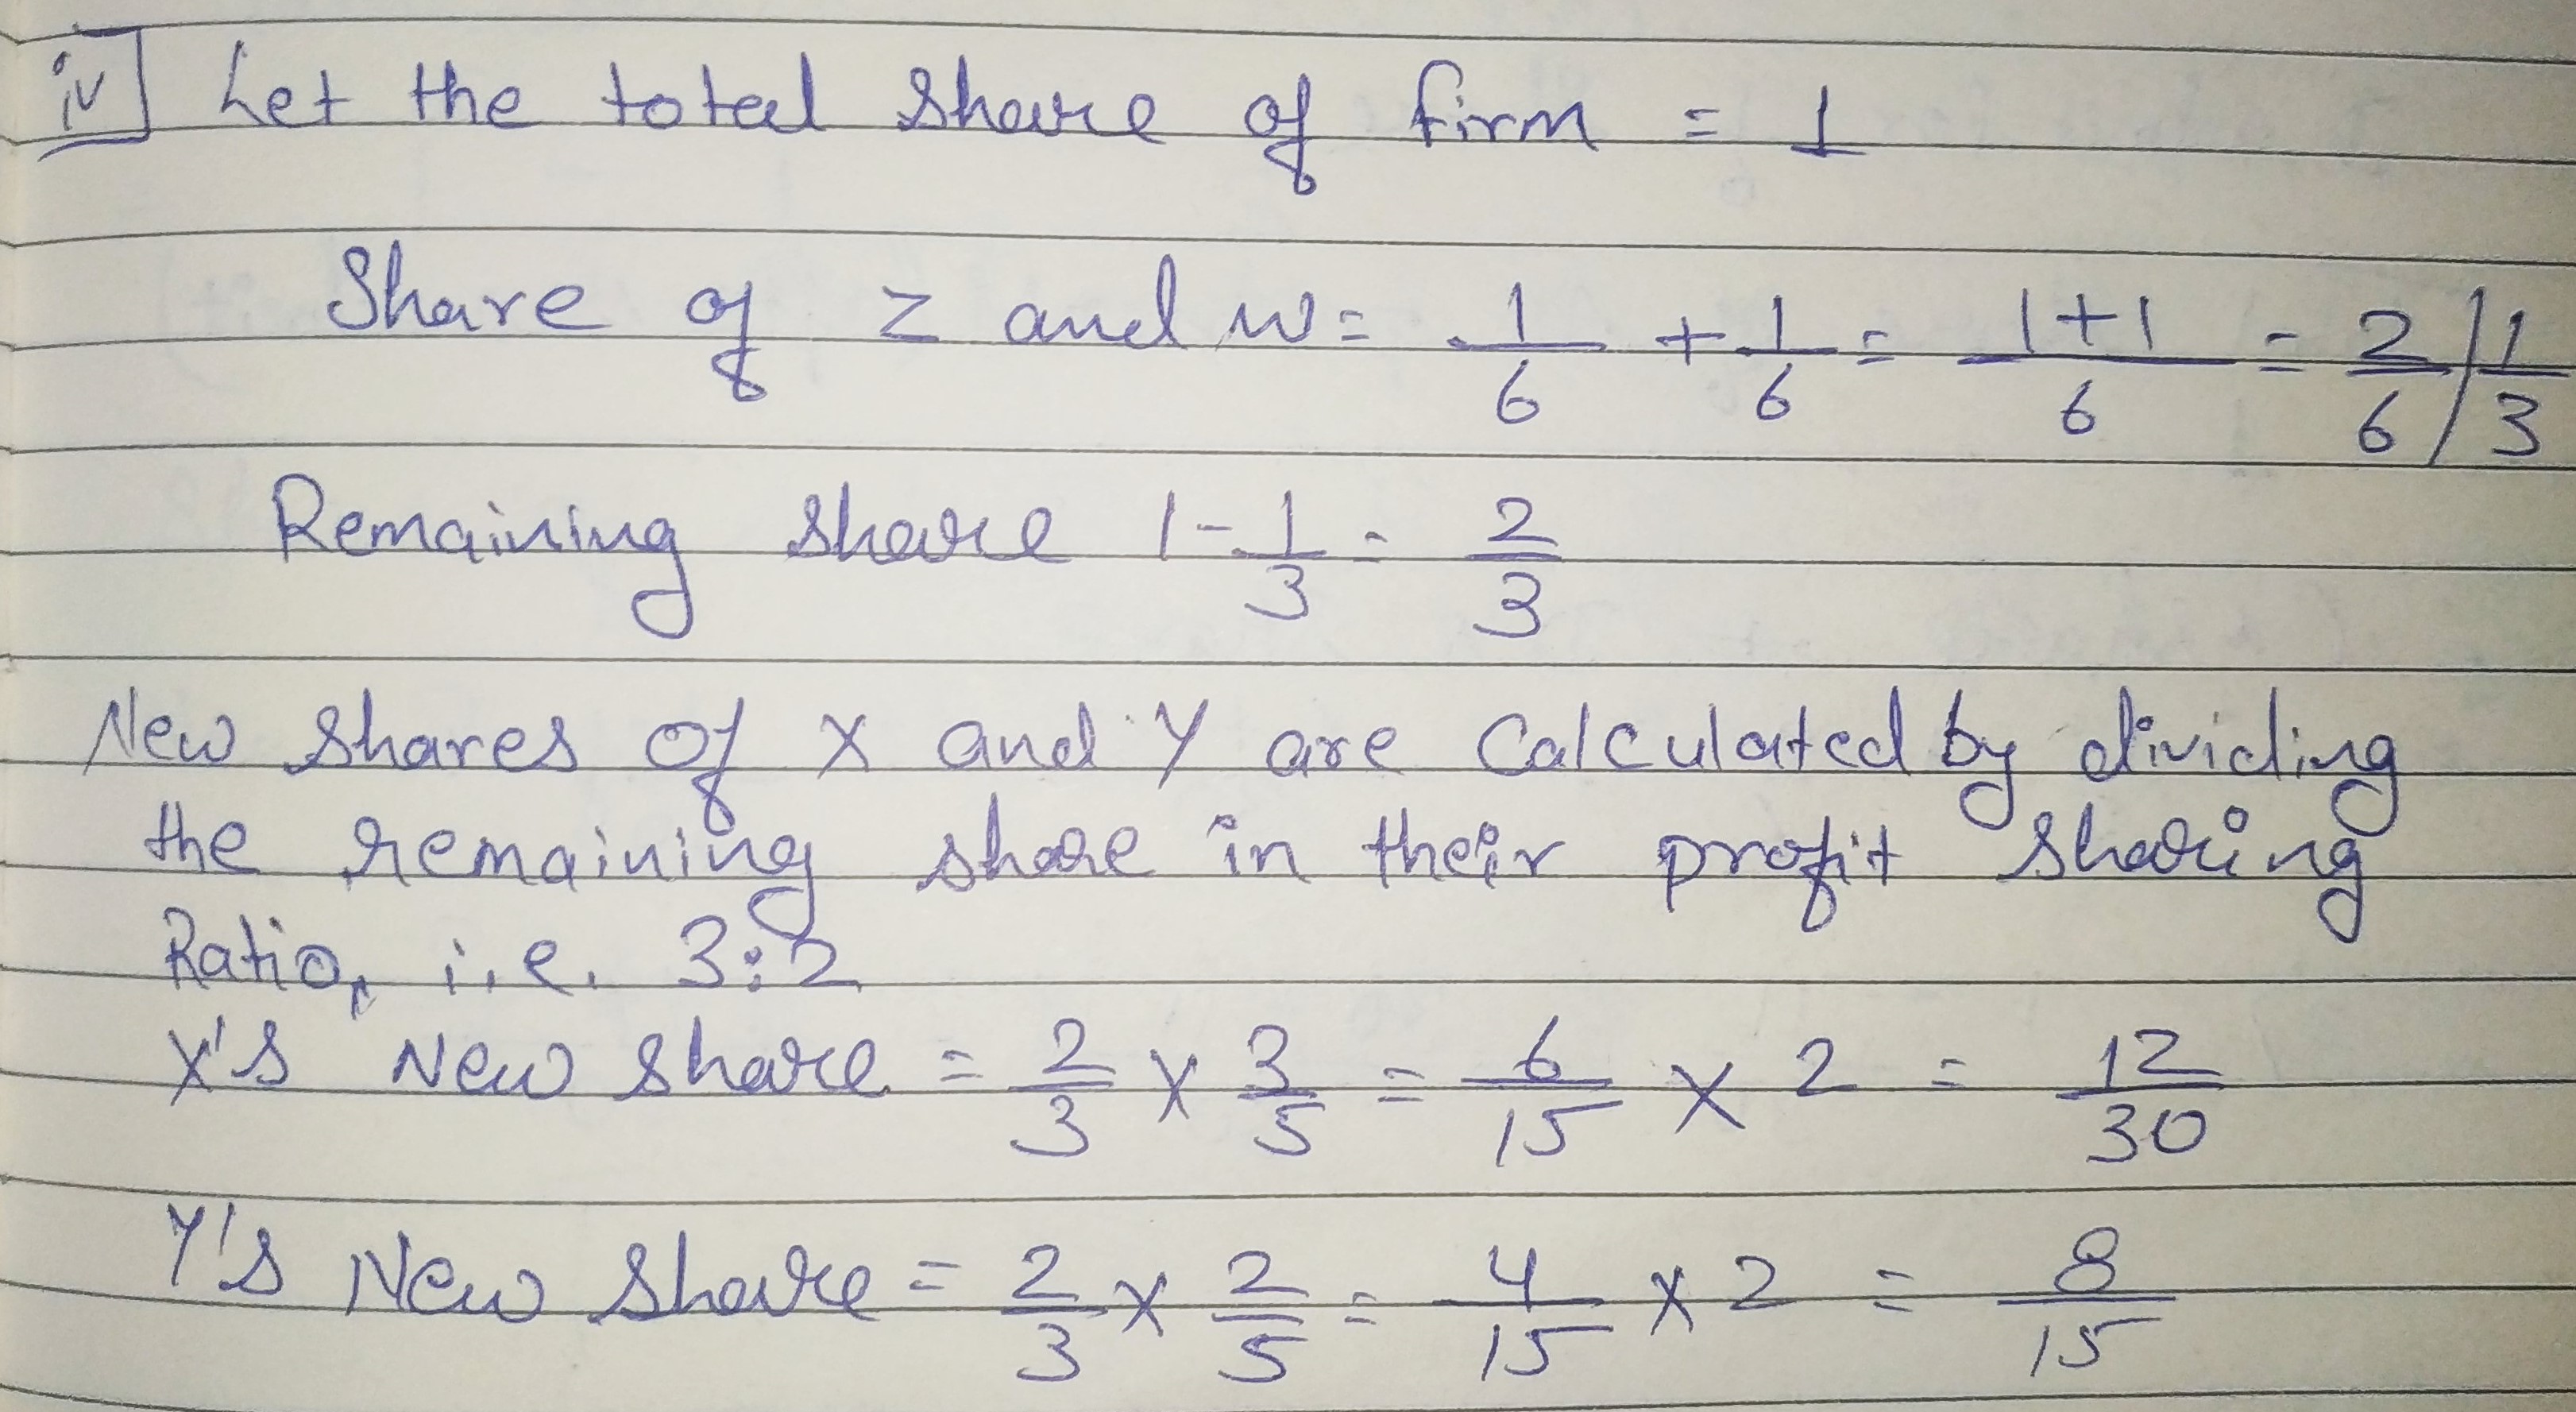 iv] Let the total share of firm = 1
Share of z and w = 1/6 + 1/6 = 1+1/6 = 2/6 / 1/3
Remaining share 1 - 1/3 = 2/3
New shares of X and Y are Calculated by dividing
the remaining share in their profit sharing
Ratio, i.e. 3:2
X's New share = 2/3 × 3/5 = 6/15 × 2 = 12/30
Y's New share = 2/3 × 2/5 = 4/15 × 2 = 8/15